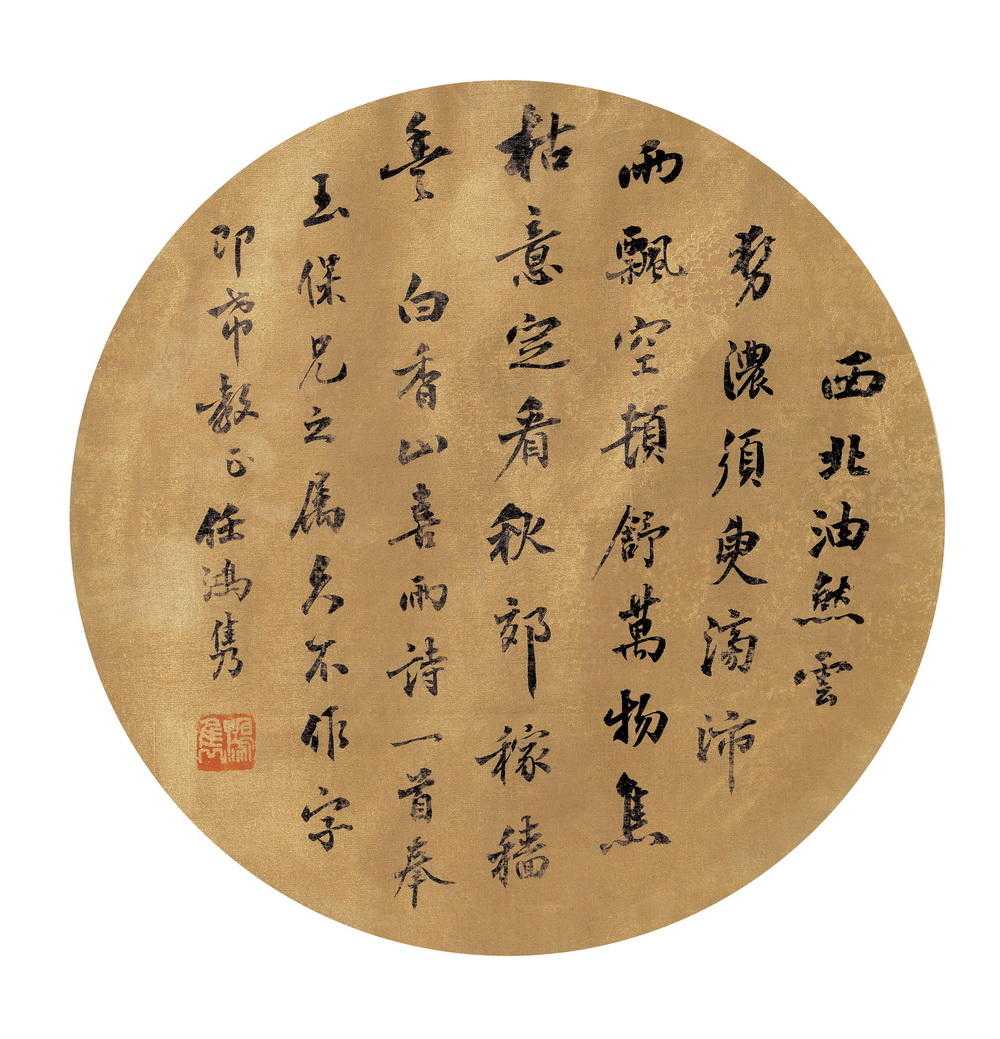 西北油然雲
勢濃須臾滂沛
雨飄空頓舒萬物焦
枯意定看秋郊稼穡
豐 白香山喜雨詩一首奉
玉保兄之属久不作字
即希教正任鴻雋